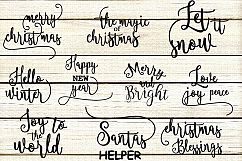 merry
christmas
the magic
of
christmas
Let
it
snow
Hello
winter
Happy
new
year
Merry
and
Bright
Love
joy peace
Joy to
the
world
Santas
HELPER
christmas
Blessings